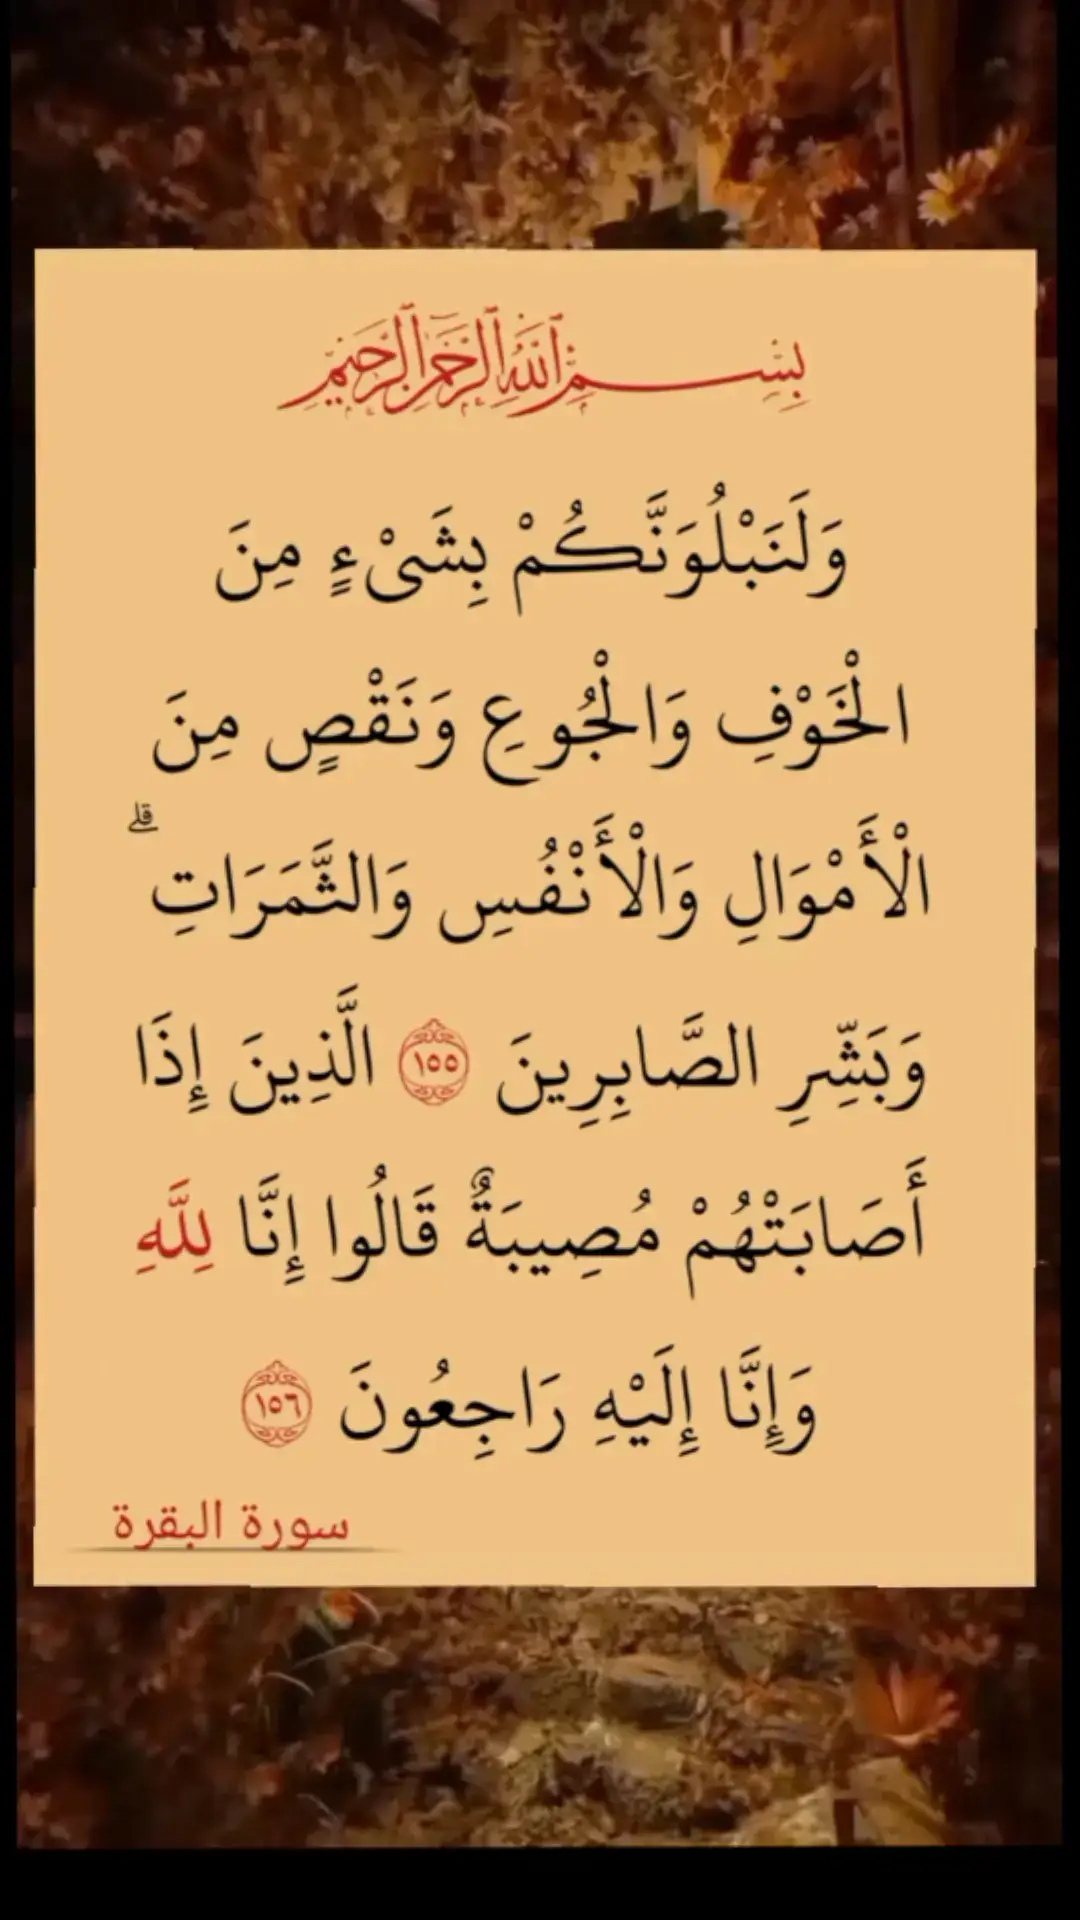 بِسْمِ ٱللَّهِ ٱلرَّحْمَٰنِ ٱلرَّحِيمِ
وَلَنَبْلُوَنَّكُمْ بِشَىْءٍ مِنَ
الْخَوْفِ وَالْجُوعِ وَنَقْصٍ مِنَ
الْأَمْوَالِ وَالْأَنْفُسِ وَالثَّمَرَاتِ ۗ
وَبَشِّرِ الصَّابِرِينَ ١٥٥ الَّذِينَ إِذَا
أَصَابَتْهُمْ مُصِيبَةٌ قَالُوا إِنَّا لِلَّهِ
وَإِنَّا إِلَيْهِ رَاجِعُونَ ١٥٦
سورة البقرة